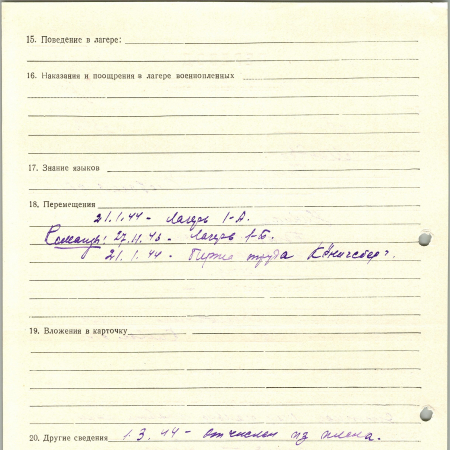 15. Поведение в лагере:
16. Наказания и поощрения в лагере военнопленных
17. Знание языков
18. Перемещения
21.1.44 - Лагерь I-А.
27.11.43 - Лагерь 1-Б.
21.1.44 - Биржа труда Кёнигсберг.
19. Вложения в карточку
20. Другие сведения 1.3.44 - отчислен из плена.